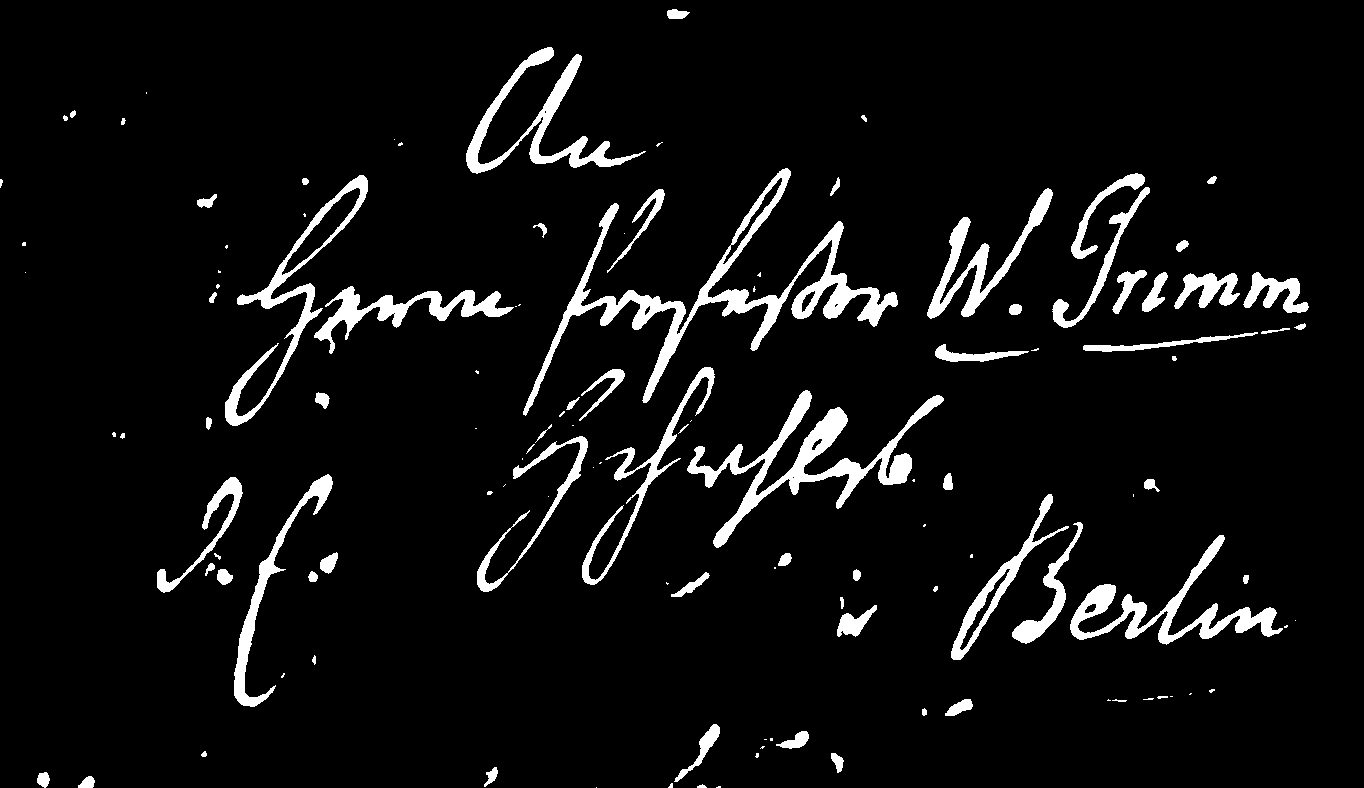 An
Herrn Professor W. Grimm
Hochwohlgeb.
Berlin